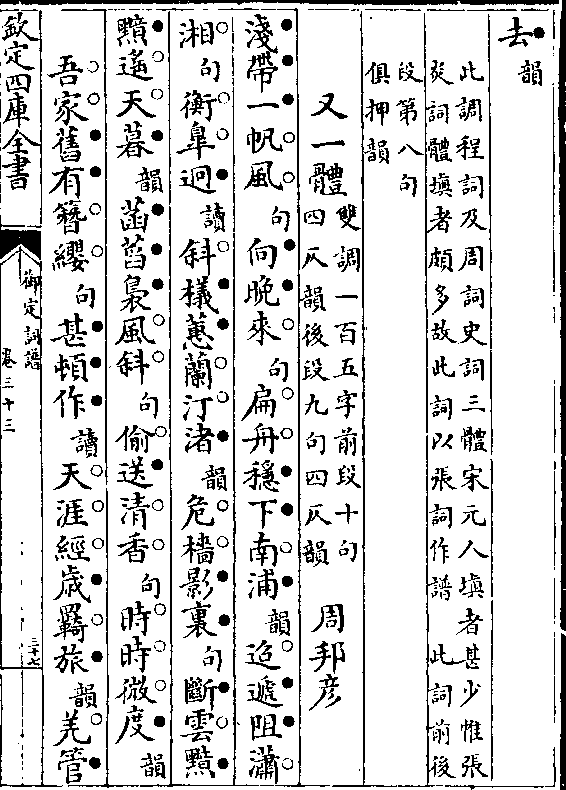 去韻
此調程詞及周詞史詞三體宋元人填者甚少惟張
炎詞體填者頗多故此詞以張詞作譜　此詞前後
段第八句
俱押韻
又一體雙調一百五字前段十句
四仄韻後段九句四仄韻　周邦彥
淺帶一帆風句向晚來句扁舟穩下南浦韻迢遞阻瀟
湘句衡臯迥讀斜檥蕙蘭汀渚韻危檣影裏句斷雲㸃
㸃遙天暮韻菡萏裊風斜句偷送清香句時時微度韻
吾家舊有簪纓句甚頓作讀天涯經歲羇旅韻羌管
欽定四庫全書
御定詞譜
卷三十三
三十七